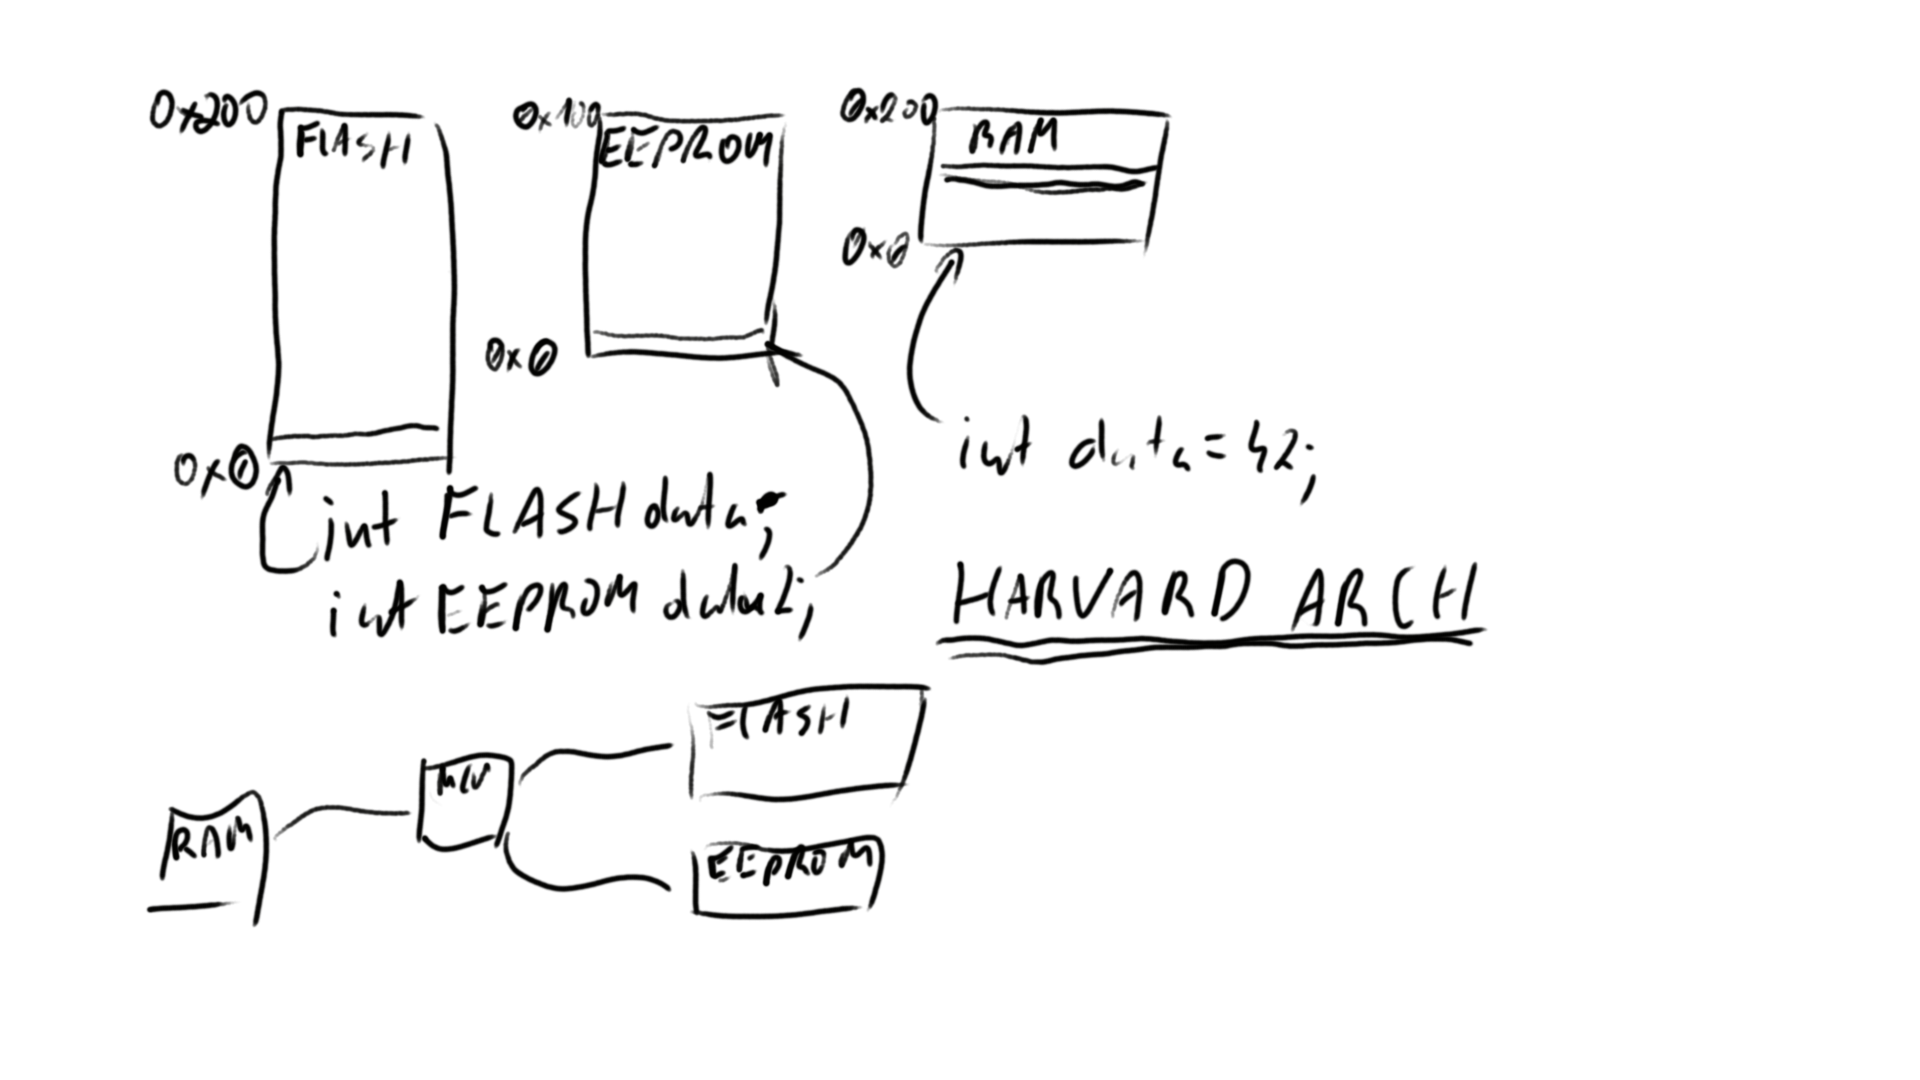 0x200
FLASH
0x0
0x100
EEPROM
0x0
0x200
RAM
0x0
int data = 42;
int FLASH data;
int EEPROM data2;
HARVARD ARCH
RAM
MCU
FLASH
EEPROM